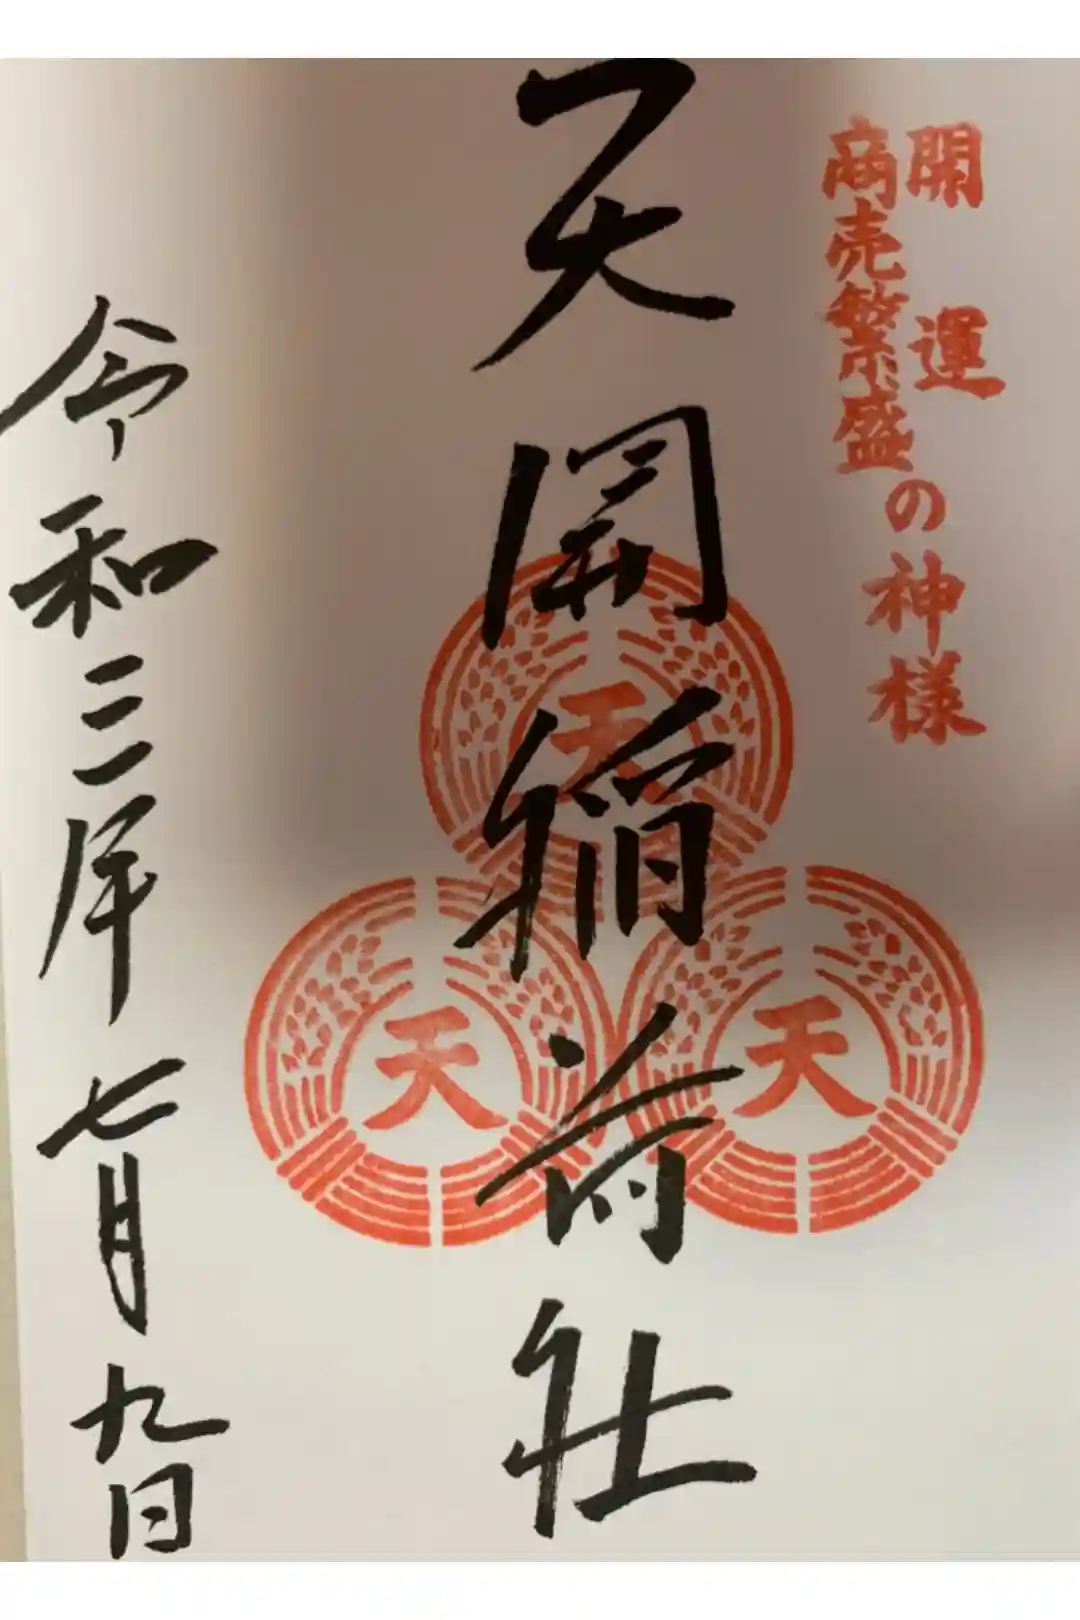 開運
商売繁盛
の神様
天開稲荷社
天
天
天
令和三年七月九日